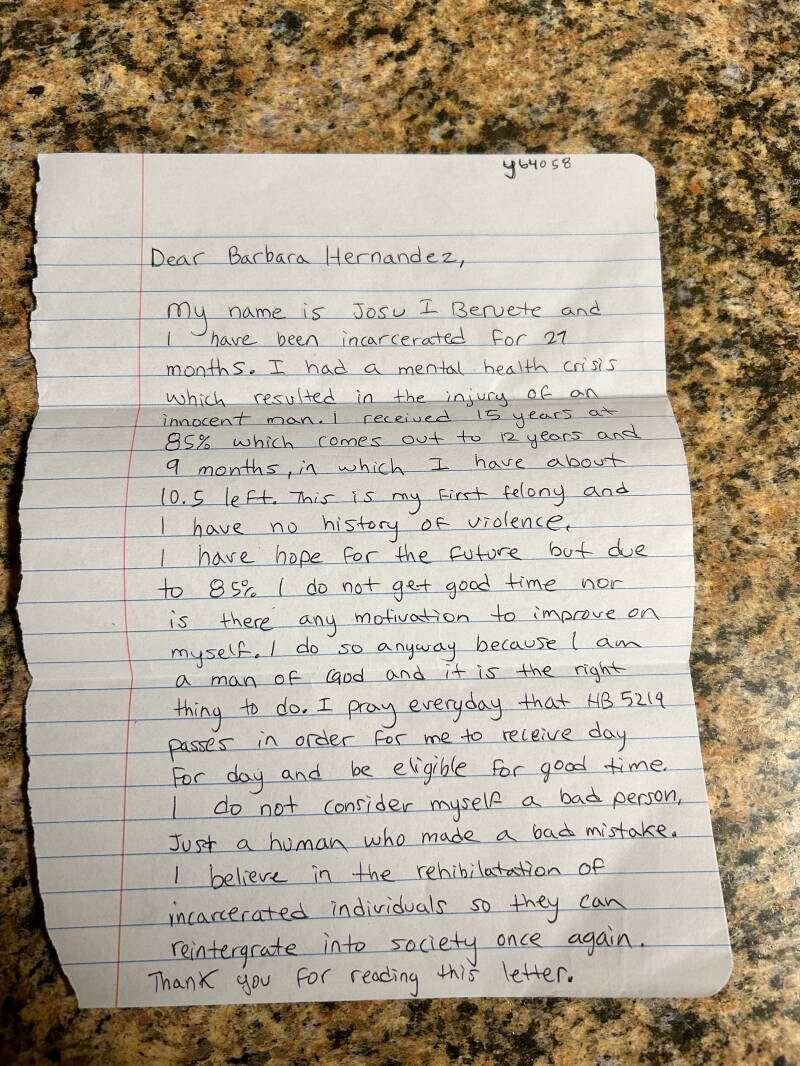 y64058
Dear Barbara Hernandez,
My name is Josu I Beruete and
I have been incarcerated for 27
months. I had a mental health crisis
which resulted in the injury of an
innocent man. I received 15 years at
85% which comes out to 12 years and
9 months, in which I have about
10.5 left. This is my first felony and
I have no history of violence.
I have hope for the future but due
to 85% I do not get good time nor
is there any motivation to improve on
myself. I do so anyway because I am
a man of God and it is the right
thing to do. I pray everyday that HB 5219
passes in order for me to receive day
for day and be eligible for good time.
I do not consider myself a bad person,
Just a human who made a bad mistake.
I believe in the rehibilatation of
incarcerated individuals so they can
reintergrate into society once again.
Thank you for reading this letter.